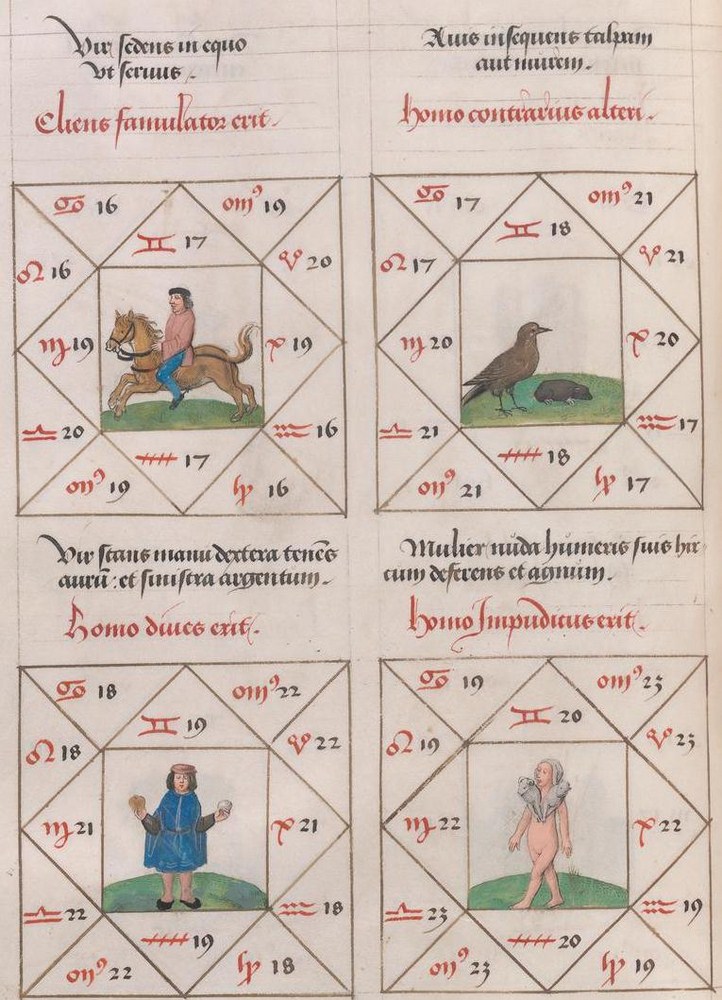 Vir sedens in equo
vt seruus.
Cliens famulator erit.
♋ 16
om⁹ 19
♊ 17
♌ 16
♈ 20
♍ 19
♓ 19
♎ 20
♒ 16
♐ 17
om⁹ 19
♑ 16
Auis insequens talpam
aut murem.
Homo contrarius alteri.
♋ 17
om⁹ 21
♊ 18
♌ 17
♈ 21
♍ 20
♓ 20
♎ 21
♒ 17
♐ 18
om⁹ 21
♑ 17
Vir stans manu dextera tenēs
aurū: et sinistra argentum.
Homo diues erit.
♋ 18
om⁹ 22
♊ 19
♌ 18
♈ 22
♍ 21
♓ 21
♎ 22
♒ 18
♐ 19
om⁹ 22
♑ 18
Mulier nuda humeris suis hir
cum deferens et agnum.
Homo Impudicus erit.
♋ 19
om⁹ 23
♊ 20
♌ 19
♈ 23
♍ 22
♓ 22
♎ 23
♒ 19
♐ 20
om⁹ 23
♑ 19